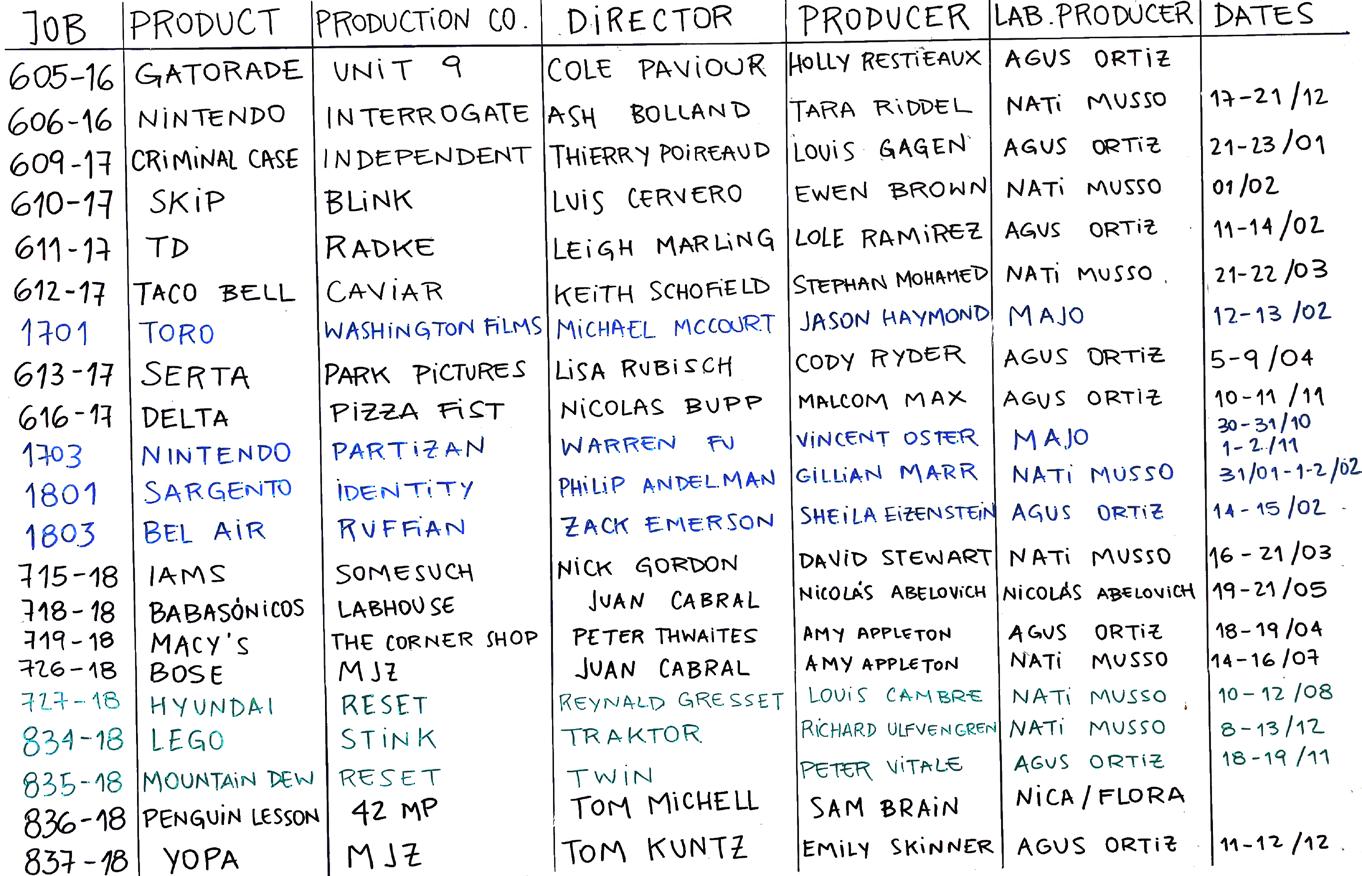 JOB PRODUCT PRODUCTION CO. DIRECTOR PRODUCER LAB.PRODUCER DATES
605-16 GATORADE UNIT 9 COLE PAVIOUR HOLLY RESTIEAUX AGUS ORTIZ
606-16 NINTENDO INTERROGATE ASH BOLLAND TARA RIDDEL NATI MUSSO 17-21/12
609-17 CRIMINAL CASE INDEPENDENT THIERRY POIREAUD LOUIS GAGEN AGUS ORTIZ 21-23/01
610-17 SKIP BLINK LUIS CERVERO EWEN BROWN NATI MUSSO 01/02
611-17 TD RADKE LEIGH MARLING LOLE RAMIREZ AGUS ORTIZ 11-14/02
612-17 TACO BELL CAVIAR KEITH SCHOFIELD STEPHAN MOHAMED NATI MUSSO. 21-22/03
1701 TORO WASHINGTON FILMS MICHAEL MCCOURT JASON HAYMOND MAJO 12-13/02
613-17 SERTA PARK PICTURES LISA RUBISCH CODY RYDER AGUS ORTIZ 5-9/04
616-17 DELTA PIZZA FIST NICOLAS BUPP MALCOM MAX AGUS ORTIZ 10-11/11
1703 NINTENDO PARTIZAN WARREN FU VINCENT OSTER MAJO 30-31/10
1-2/11
1801 SARGENTO IDENTITY PHILIP ANDELMAN GILLIAN MARR NATI MUSSO 31/01-1-2/02
1803 BEL AIR RUFFIAN ZACK EMERSON SHEILA EIZENSTEIN AGUS ORTIZ 14-15/02
715-18 IAMS SOMESUCH NICK GORDON DAVID STEWART NATI MUSSO 16-21/03
718-18 BABASÓNICOS LABHOUSE JUAN CABRAL NICOLÁS ABELOVICH NICOLÁS ABELOVICH 19-21/05
719-18 MACY'S THE CORNER SHOP PETER THWAITES AMY APPLETON AGUS ORTIZ 18-19/04
726-18 BOSE MJZ JUAN CABRAL AMY APPLETON NATI MUSSO 14-16/07
727-18 HYUNDAI RESET REYNALD GRESSET LOUIS CAMBRE NATI MUSSO 10-12/08
834-18 LEGO STINK TRAKTOR RICHARD ULFVENGREN NATI MUSSO 8-13/12
835-18 MOUNTAIN DEW RESET TWIN PETER VITALE AGUS ORTIZ 18-19/11
836-18 PENGUIN LESSON 42 MP TOM MICHELL SAM BRAIN NICA/FLORA
837-18 YOPA MJZ TOM KUNTZ EMILY SKINNER AGUS ORTIZ 11-12/12.